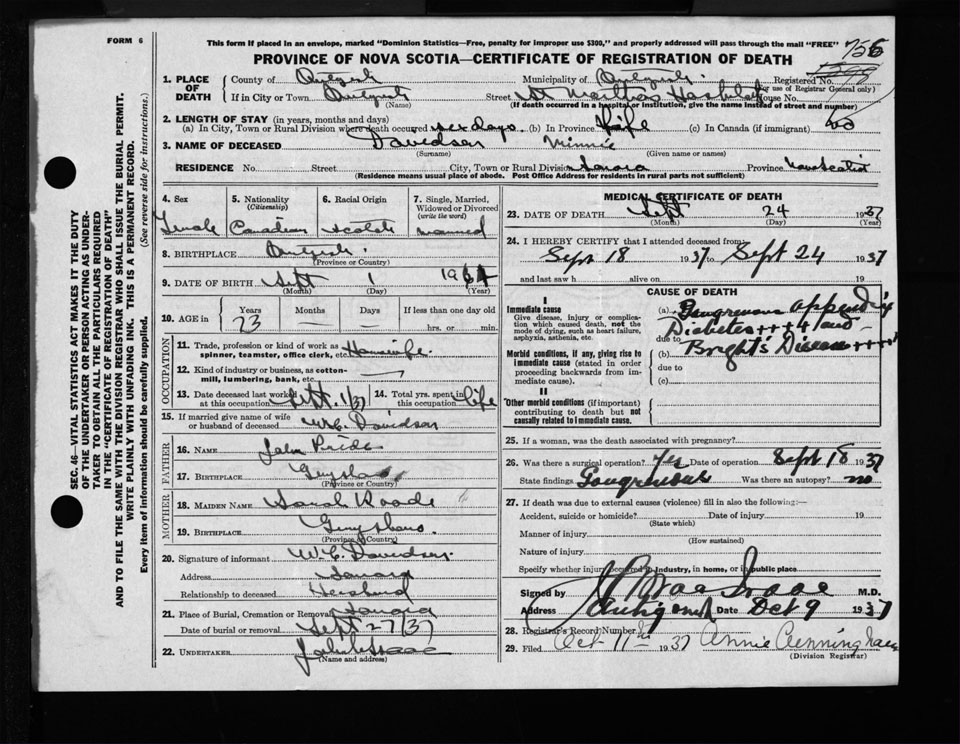 FORM 6
This form if placed in an envelope, marked "Dominion Statistics—Free, penalty for improper use $300," and properly addressed will pass through the mail "FREE"
PROVINCE OF NOVA SCOTIA—CERTIFICATE OF REGISTRATION OF DEATH
1. PLACE OF DEATH
County of
Municipality of
Registered No.
(For use of Registrar General only)
If in City or Town
(Name)
Street St Marthas Hospital House No.
(If death occurred in a hospital or institution, give the name instead of street and number)
2. LENGTH OF STAY (in years, months and days)
(a) In City, Town or Rural Division where death occurred six days. (b) In Province Life (c) In Canada (if immigrant)
3. NAME OF DECEASED Davidson Minnie
(Surname) (Given name or names)
RESIDENCE No. Street City, Town or Rural Division Province Nova Scotia
(Residence means usual place of abode. Post Office Address for residents in rural parts not sufficient)
4. Sex
Female
5. Nationality (Citizenship)
Canadian
6. Racial Origin
Scotch
7. Single, Married, Widowed or Divorced (write the word)
Married
8. BIRTHPLACE
(Province or Country)
9. DATE OF BIRTH Sept 1
(Month) (Day) (Year)
10. AGE in
Years Months Days If less than one day
23 — — hrs. or min.
OCCUPATION
11. Trade, profession or kind of work as spinner, teamster, office clerk, etc. Housewife
12. Kind of industry or business, as cotton-mill, lumbering, bank, etc.
13. Date deceased last worked at this occupation Sept. 1/37
14. Total yrs. spent in this occupation Life
15. If married give name of wife or husband of deceased W.C. Davidson
FATHER
16. NAME John Pride
17. BIRTHPLACE
(Province or Country)
MOTHER
18. MAIDEN NAME Sarah
19. BIRTHPLACE Guysboro
(Province or Country)
20. Signature of informant W.C. Davidson
Address
Relationship to deceased Husband
21. Place of Burial, Cremation or Removal
Date of burial or removal Sept 27/37
22. UNDERTAKER
(Name and address)
MEDICAL CERTIFICATE OF DEATH
23. DATE OF DEATH Sept 24 1937
(Month) (Day) (Year)
24. I HEREBY CERTIFY that I attended deceased from:
Sept 18 1937 to Sept 24 1937
and last saw h alive on 19
CAUSE OF DEATH
I
Immediate cause
Give disease, injury or complication which caused death, not the mode of dying, such as heart failure, asphyxia, asthenia, etc.
(a) Gangrenous
due to Diabetes ++++ and
Morbid conditions, if any, giving rise to immediate cause (stated in order proceeding backwards from immediate cause).
(b) Bright's Disease ++++
due to
(c)
II
Other morbid conditions (if important) contributing to death but not causally related to immediate cause.
25. If a woman, was the death associated with pregnancy?
26. Was there a surgical operation? Yes Date of operation Sept 18 1937
State findings Was there an autopsy? no
27. If death was due to external causes (violence) fill in also the following:—
Accident, suicide or homicide? Date of injury 19
(State which)
Manner of injury
(How sustained)
Nature of injury
Specify whether injury occurred in industry, in home, or in public place
Signed by M.D.
Address Date Oct 9 1937
28. Registrar's Record Number
29. Filed Oct 11th 1937 Annie Cunningham
(Division Registrar)
SEC. 46—VITAL STATISTICS ACT MAKES IT THE DUTY
OF THE UNDERTAKER OR PERSON ACTING AS UNDER-
TAKER TO OBTAIN ALL THE PARTICULARS REQUIRED
IN THE "CERTIFICATE OF REGISTRATION OF DEATH"
AND TO FILE THE SAME WITH THE DIVISION REGISTRAR WHO SHALL ISSUE THE BURIAL PERMIT.
WRITE PLAINLY WITH UNFADING INK. THIS IS A PERMANENT RECORD.
Every item of information should be carefully supplied. (See reverse side for instructions.)